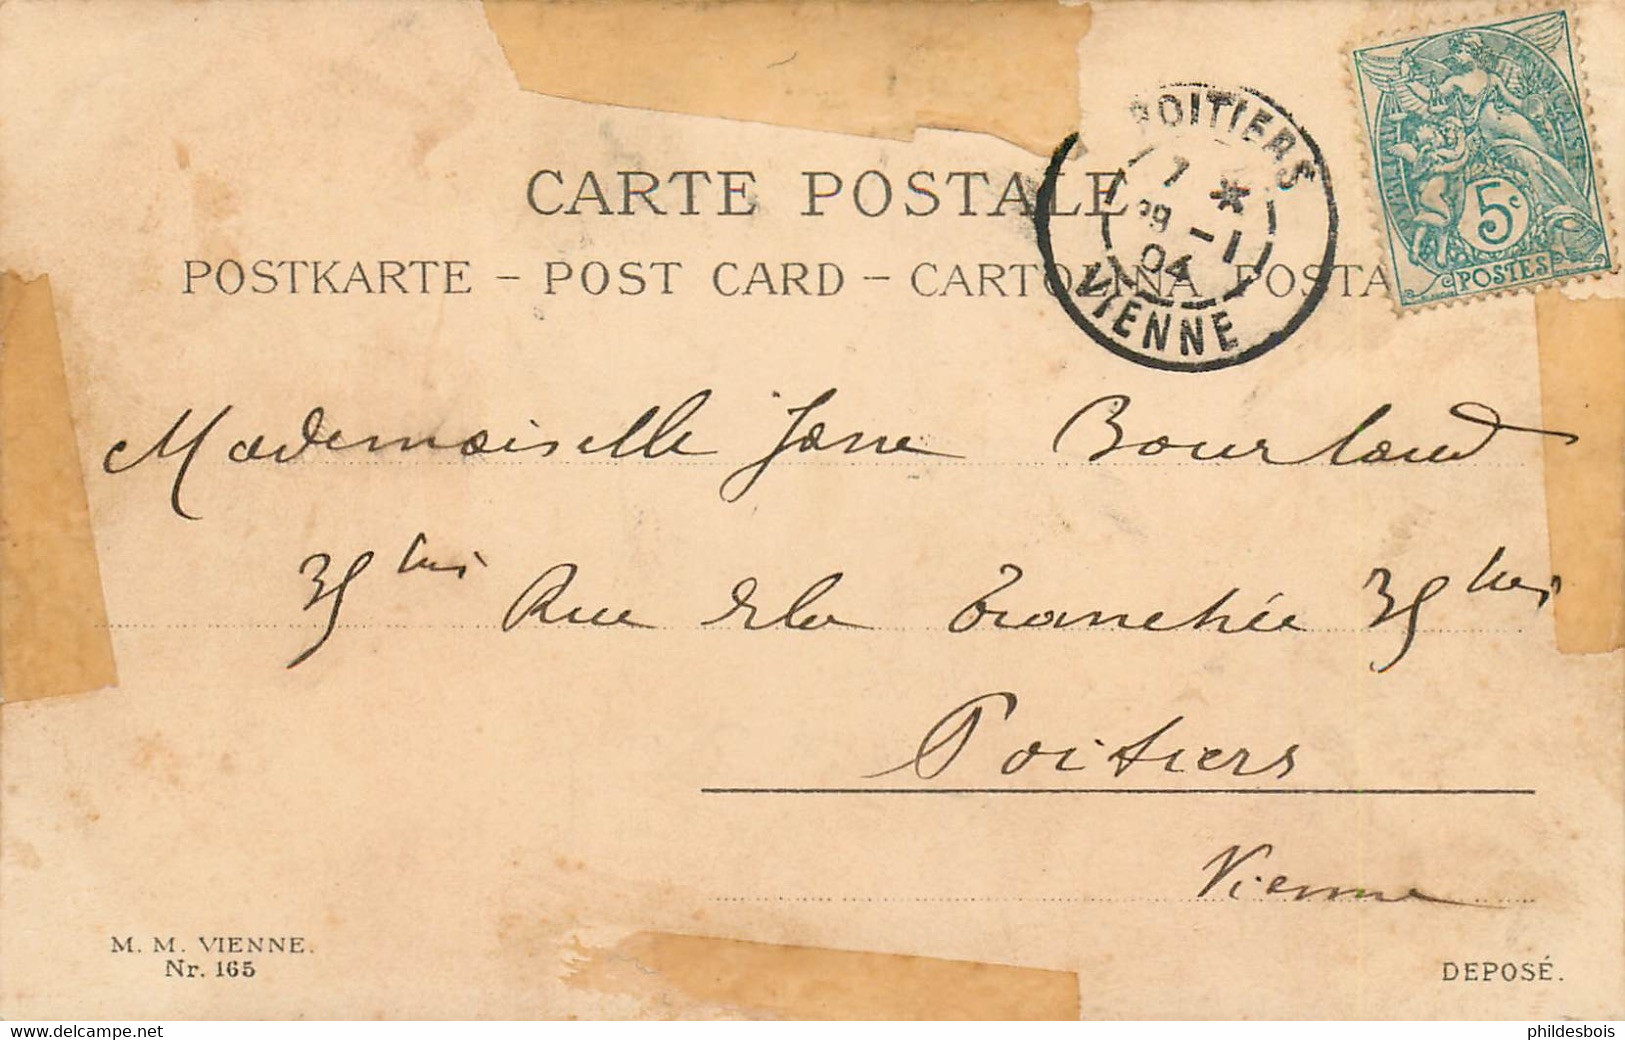 CARTE POSTALE
POSTKARTE – POST CARD – CARTOLINA POSTA
POITIERS
7 *
29 -1
04
VIENNE
REPUBLIQUE FRANÇAISE
5c
POSTES
Mademoiselle Jane Bourland
35 bis Rue de la Tranchée 35 bis
Poitiers
Vienne
M. M. VIENNE.
Nr. 165
DEPOSÉ.
www.delcampe.net
phildesbois